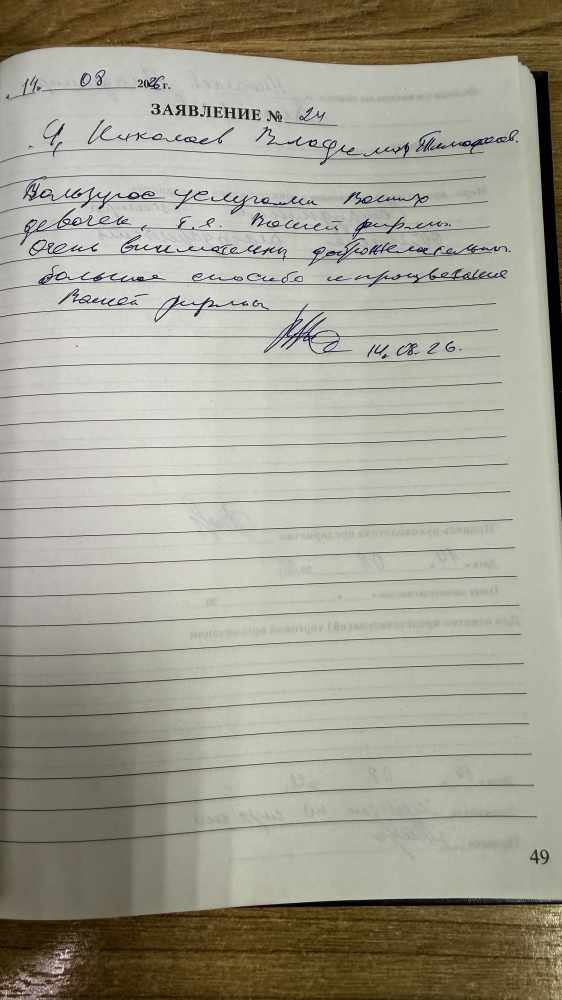 14. 08 2026 г.
ЗАЯВЛЕНИЕ № 24
Я, Николаев Владимир Тимофеев.
Пользуюсь услугами Ваших
девочек, т.е. Вашей фирмы.
Очень внимательны доброжелательны.
большое спасибо и процветание
Вашей фирмы
14.08.26.
49